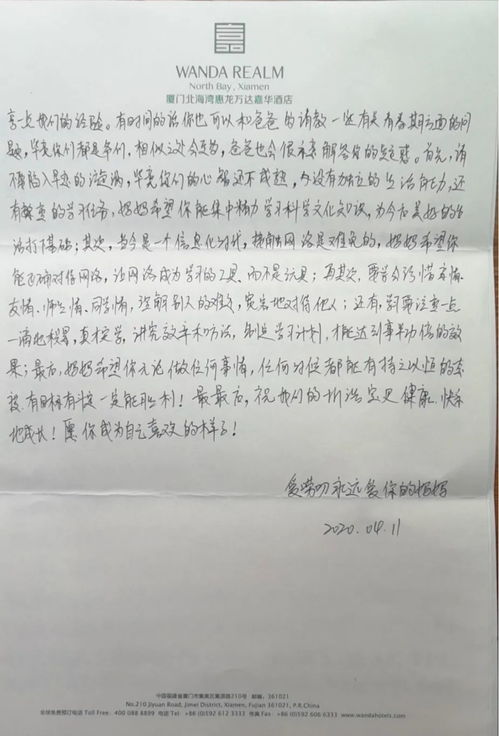 WANDA REALM
North Bay, Xiamen
厦门北海湾惠龙万达嘉华酒店
享一点我们的经验。有时间的话你也可以和爸爸请教一些有关青春期方面的问
题,毕竟你们都是男的,相似之处会更多,爸爸也会很乐意解答你的疑惑。首先,请
不要陷入早恋的漩涡,毕竟你们的心智还不成熟,又没有独立的生活能力,还
有繁重的学习任务,妈妈希望你能集中精力学习科学文化知识,为今后美好的生
活打下基础;其次,当今是一个信息化时代,接触网络是难免的,妈妈希望你
能正确对待网络,让网络成为学习的工具、而不是玩具;再其次,要学会珍惜亲情、
友情、师生情、同学情,理解别人的难处,宽容地对待他人;还有,学习要注重一点
一滴地积累,真才实学,讲究效率和方法,制定学习计划,才能达到事半功倍的效
果;最后,妈妈希望你无论做任何事情,任何时候都能有持之以恒的态
度,有目标有斗志一定能胜利!最最后,祝我们的宝贝健康、快乐
地成长!愿你成为自己喜欢的样子!
永远爱你的妈妈
2020.04.11
中国福建省厦门市集美区集源路210号 邮编:361021
No.210 Jiyuan Road, Jimei District, Xiamen, Fujian 361021, P.R.China
全球免费预订电话 Toll Free. 400 088 8899 电话 Tel +86 (0)592 612 3333 传真 Fax +86 (0)592 606 6333 www.wandahotels.com